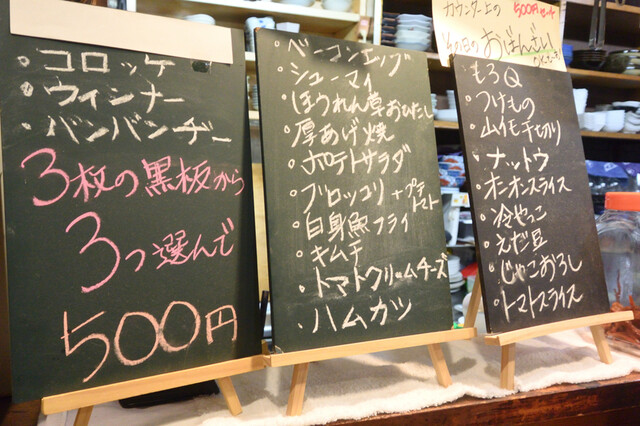 ・コロッケ
・ウィンナー
・バンバンヂー
3枚の黒板から
3つ選んで
500円
・ベーコンエッグ
・シューマイ
・ほうれん草おひたし
・厚あげ焼
・ポテトサラダ
・ブロッコリ+プチトマト
・自身魚フライ
・キムチ
・トマトクリームチーズ
・ハムカツ
カウンター上の500円セット
今の日のおばんざい
・もろQ
・つけもの
・山イモ千切り
・ナットウ
・オニオンスライス
・冷やっこ
・えだ豆
・じゃこおろし
・トマトスライス